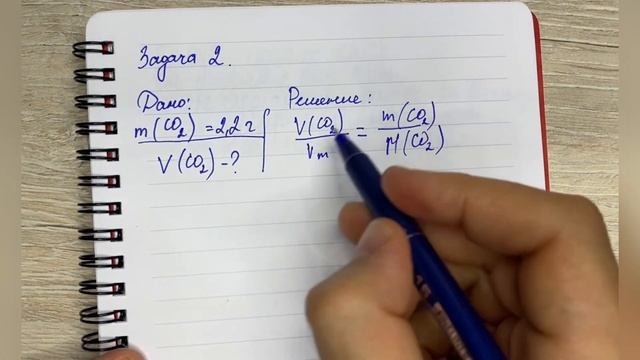 Задача 2.
Дано:
m(CO₂) = 2,2 г
V(CO₂) - ?
Решение:
V(CO₂) / Vm = m(CO₂) / M(CO₂)